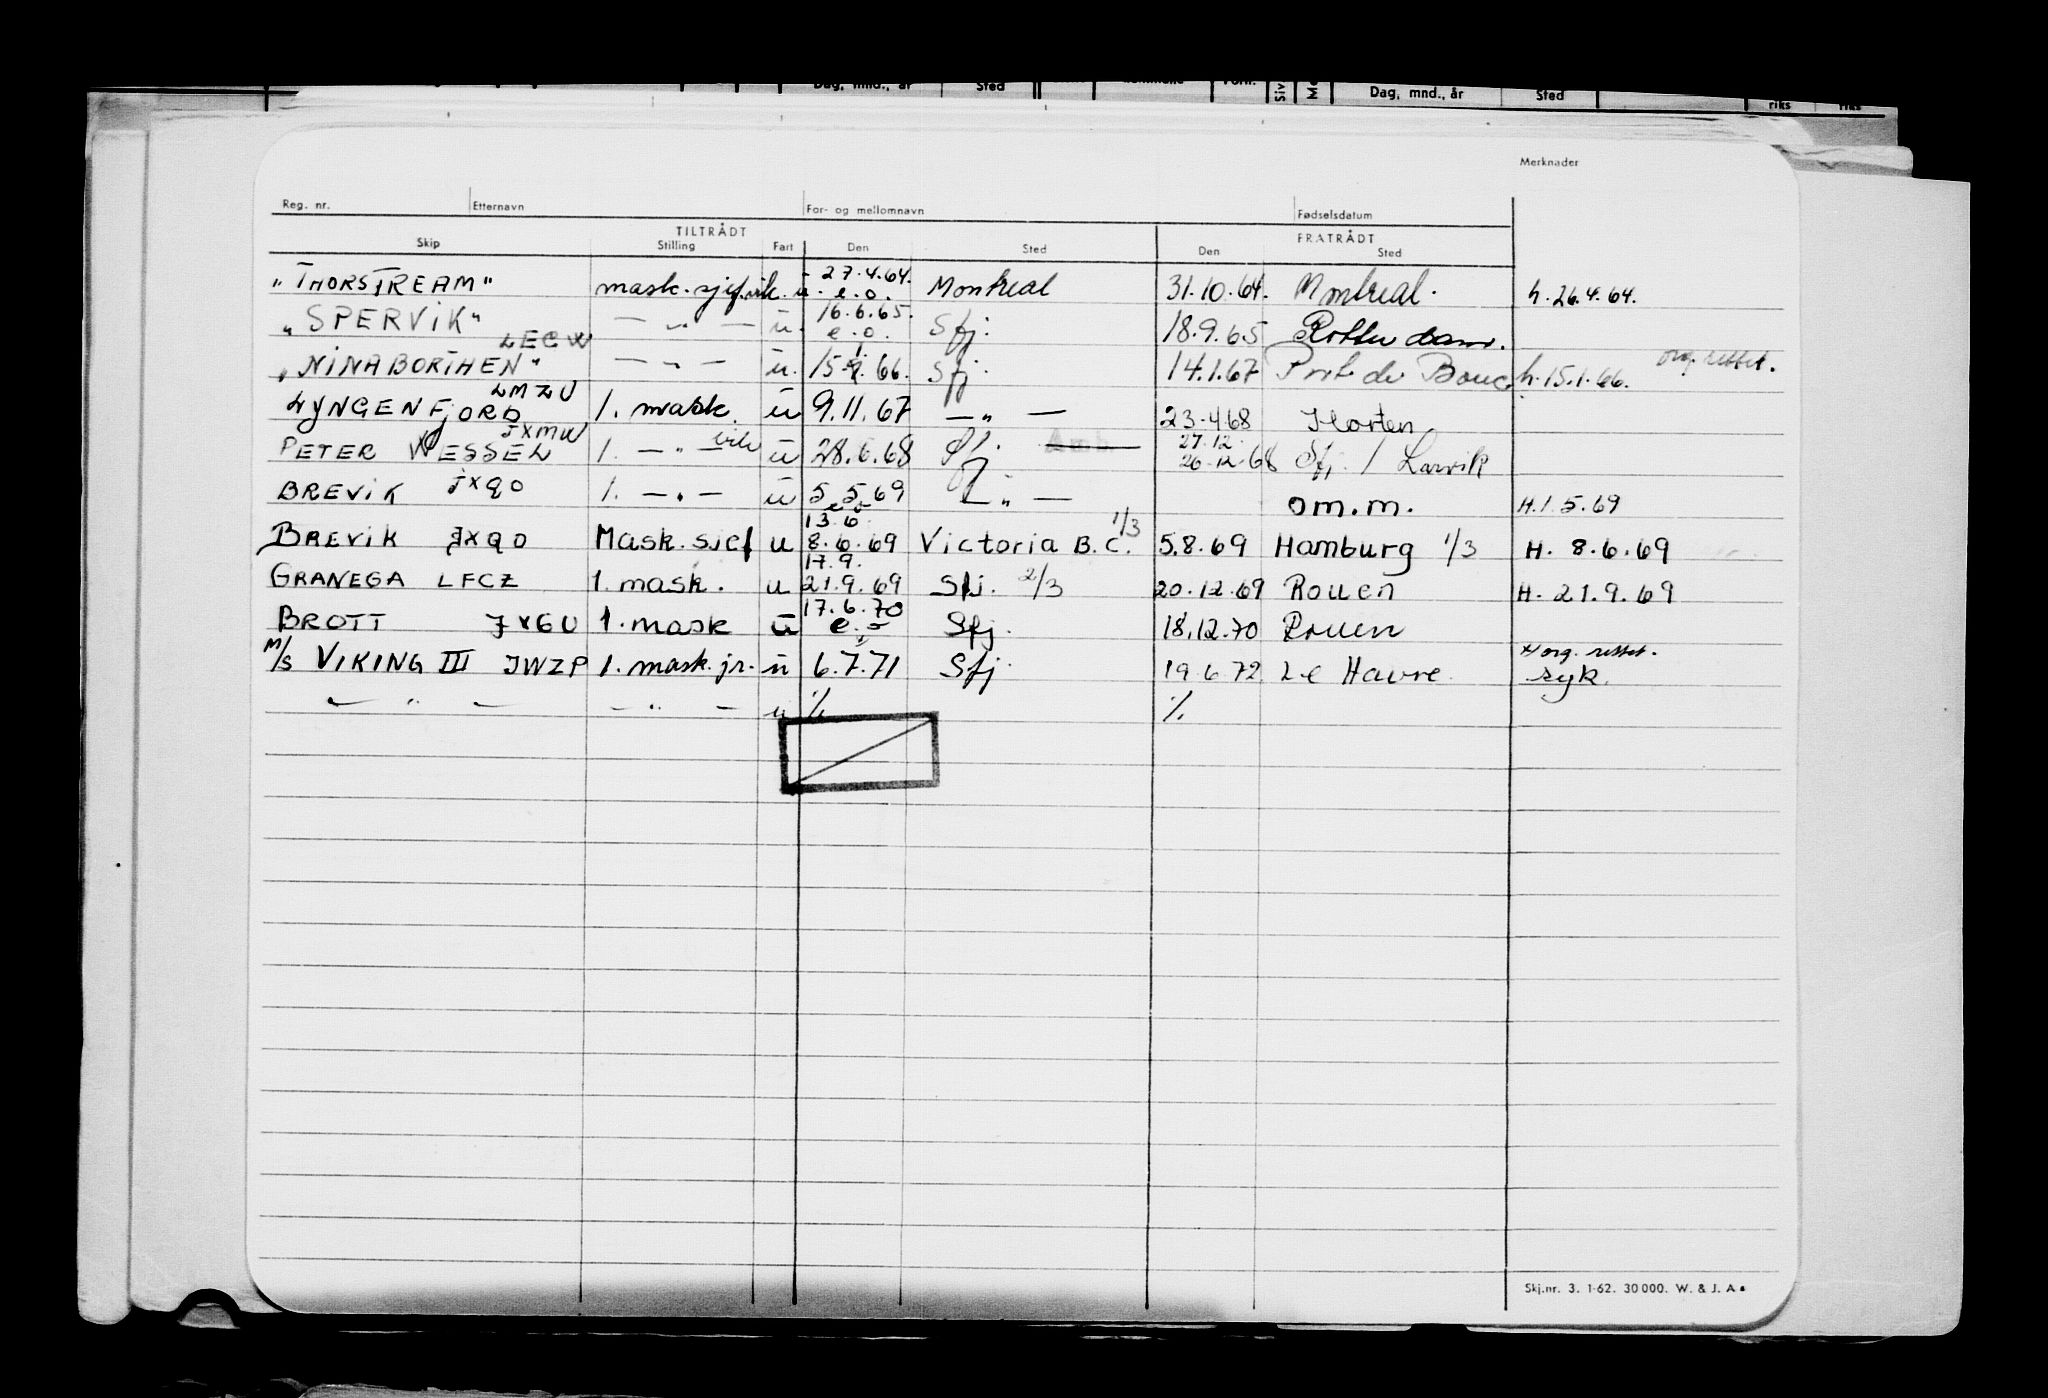 Dag, mnd., år Sted Dag, mnd., år Sted riks riks
Merknader
Reg. nr. Etternavn For- og mellomnavn Fødselsdatum
TILTRÅDT FRATRÅDT
Skip Stilling Fart Den Sted Den Sted
27.4.64.
"THORSTREAM" mask. sjef. vik. u. e.o. Montreal 31.10.64. Montreal. h. 26.4.64.
16.6.65.
"SPERVIK" — " — u. e.o. Sfj. 18.9.65 Rotterdam.
LECW
"NINA BORTHEN" — " — u. 15. 66. Sfj. 14.1.67 Port de Bouc h. 15.1.66. org. rettet.
LMZU
LYNGENFJORD 1. mask. u 9.11.67 — " — 23.4.68 Horten
JXMW 27.12.
PETER WESSEL 1. — " — vik u 28.6.68 Sfj. 26.12.68 Sfj. / Larvik
BREVIK JXQO 1. — " — u 5.5.69 — " — om.m. H.1.5.69
e.o.
13.6.
BREVIK JXQO Mask. sjef u 8.6.69 Victoria B.C. 1/3 5.8.69 Hamburg 1/3 H. 8.6.69
17.9.
GRANEGA LFCZ 1. mask. u 21.9.69 Sfj. 2/3 20.12.69 Rouen H. 21.9.69
17.6.70
BROTT JXGU 1. mask u e.o Sfj. 18.12.70 Rouen
M/S VIKING III JWZP 1. mask. jr. u 6.7.71 Sfj. 19.6.72 Le Havre org. rettet.
syk.
— " — — " — u ./. ./.
Skj.nr. 3. 1-62. 30 000. W. & J. A.